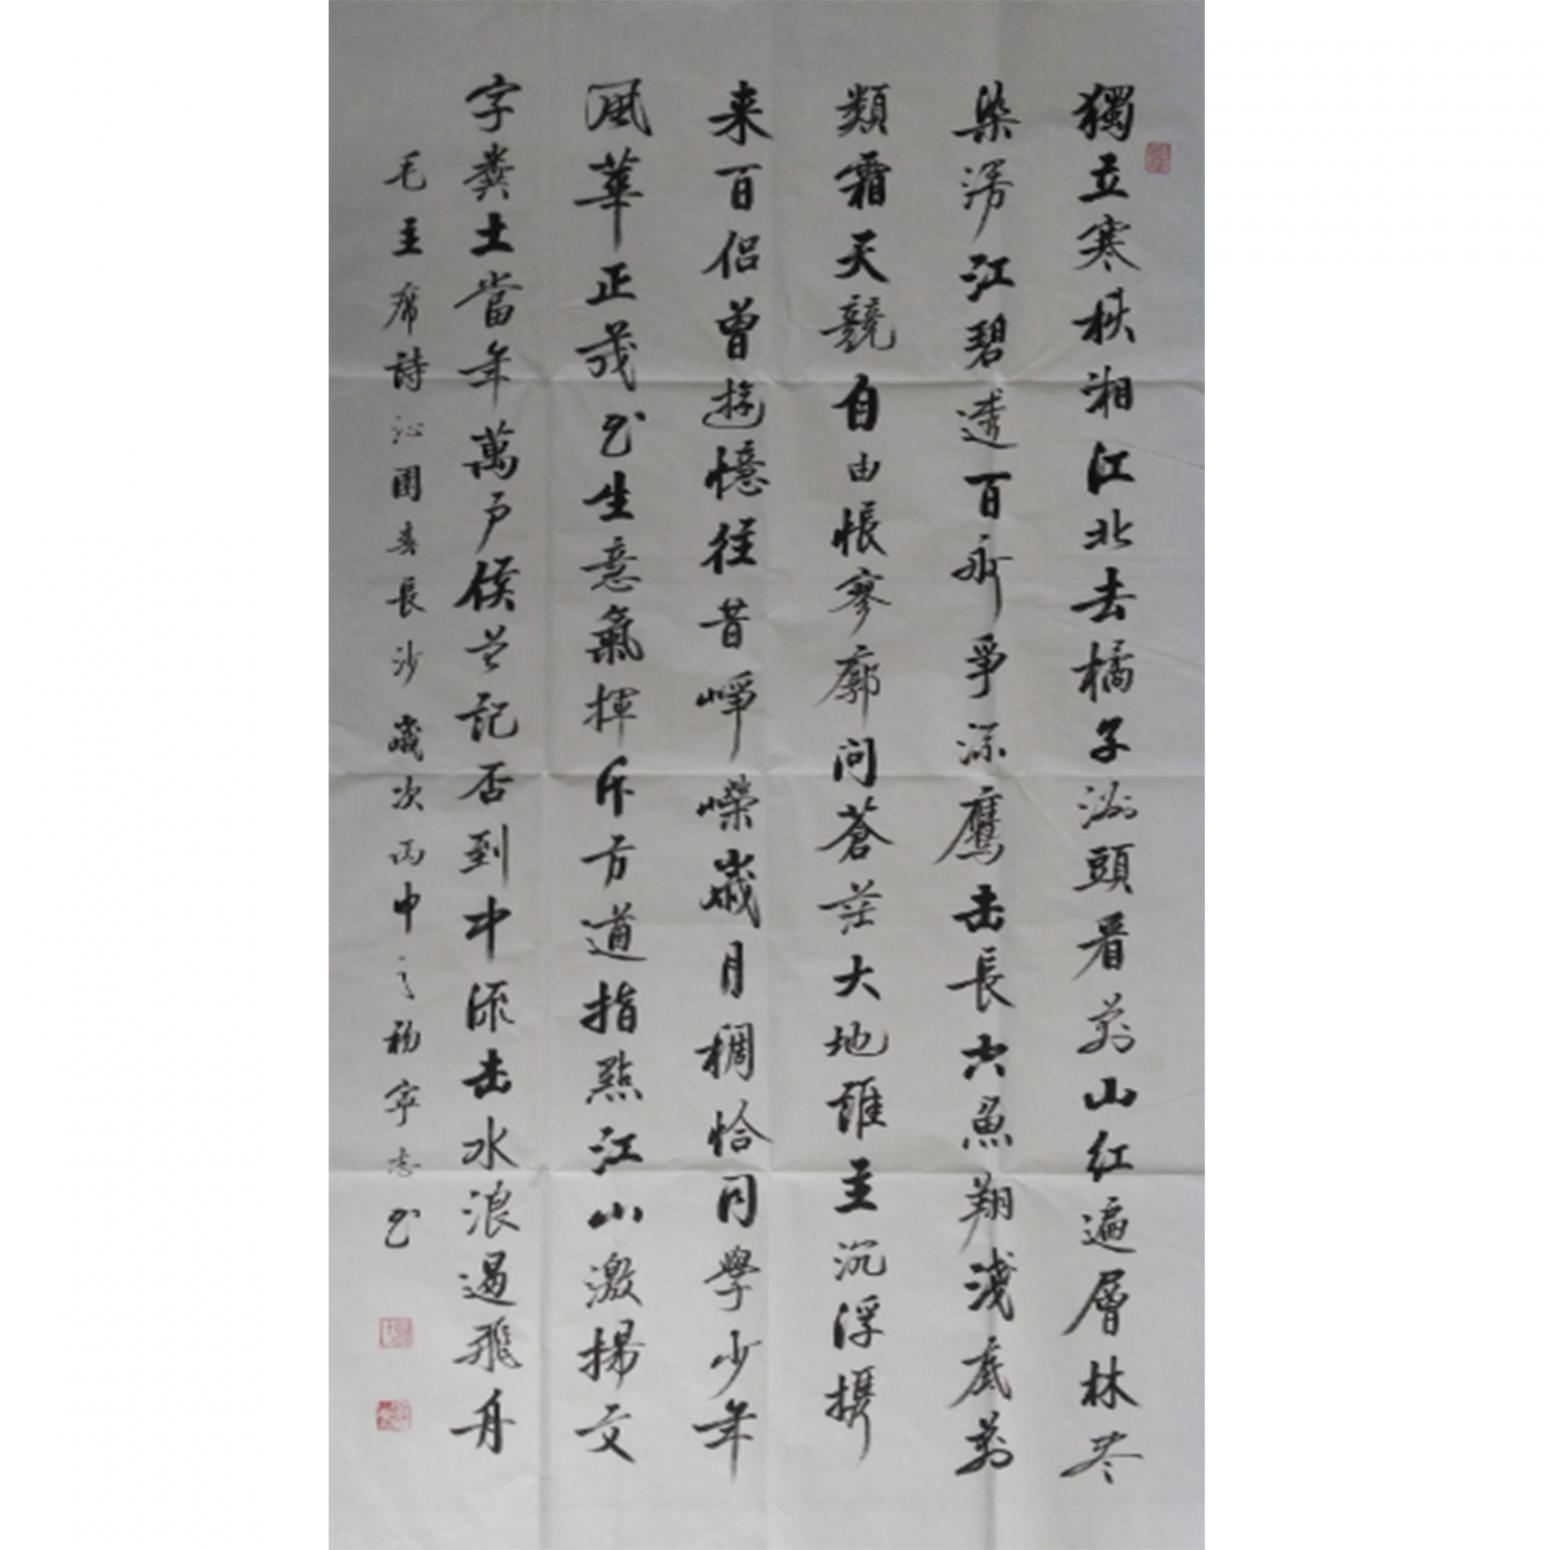 獨立寒秋湘江北去橘子洲頭看萬山红遍層林尽
染漫江碧透百舸爭流鷹击長空魚翔淺底萬
類霜天競自由悵寥廓问蒼茫大地誰主沉浮携
来百侣曾遊憶往昔崢嶸歲月稠恰同學少年
風華正茂书生意氣揮斥方遒指點江山激揚文
字糞土當年萬户侯曾記否到中流击水浪遏飛舟
毛主席詩沁園春長沙歲次丙申之寧志书